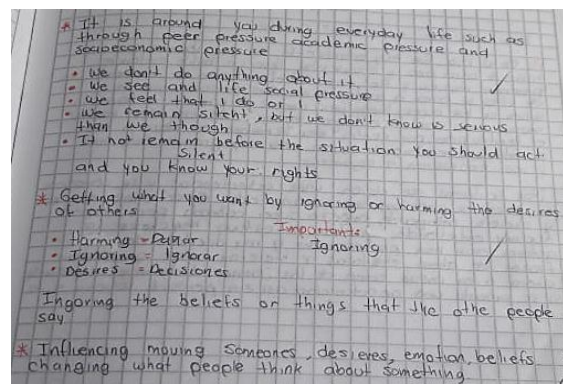 * It is around you during everyday life such as
through peer pressure academic pressure and
socioeconomic pressure
• We don't do anything about it
• we see and life social pressure
• we feel that I do or I
• We remain silent, but we don't know is serious
than we though
• It not remain before the situation you should act.
Silent
and you know your rights
* Getting what you want by ignoring or harming the desires
of others
Importants
• Harming = Dañar
Ignoring
• Ignoring = Ignorar
• Desires = Decisiones
Ingoring the beliefs or things that the othe people
say
* Influencing moving someones, desieres, emotion, beliefs
changing what people think about something